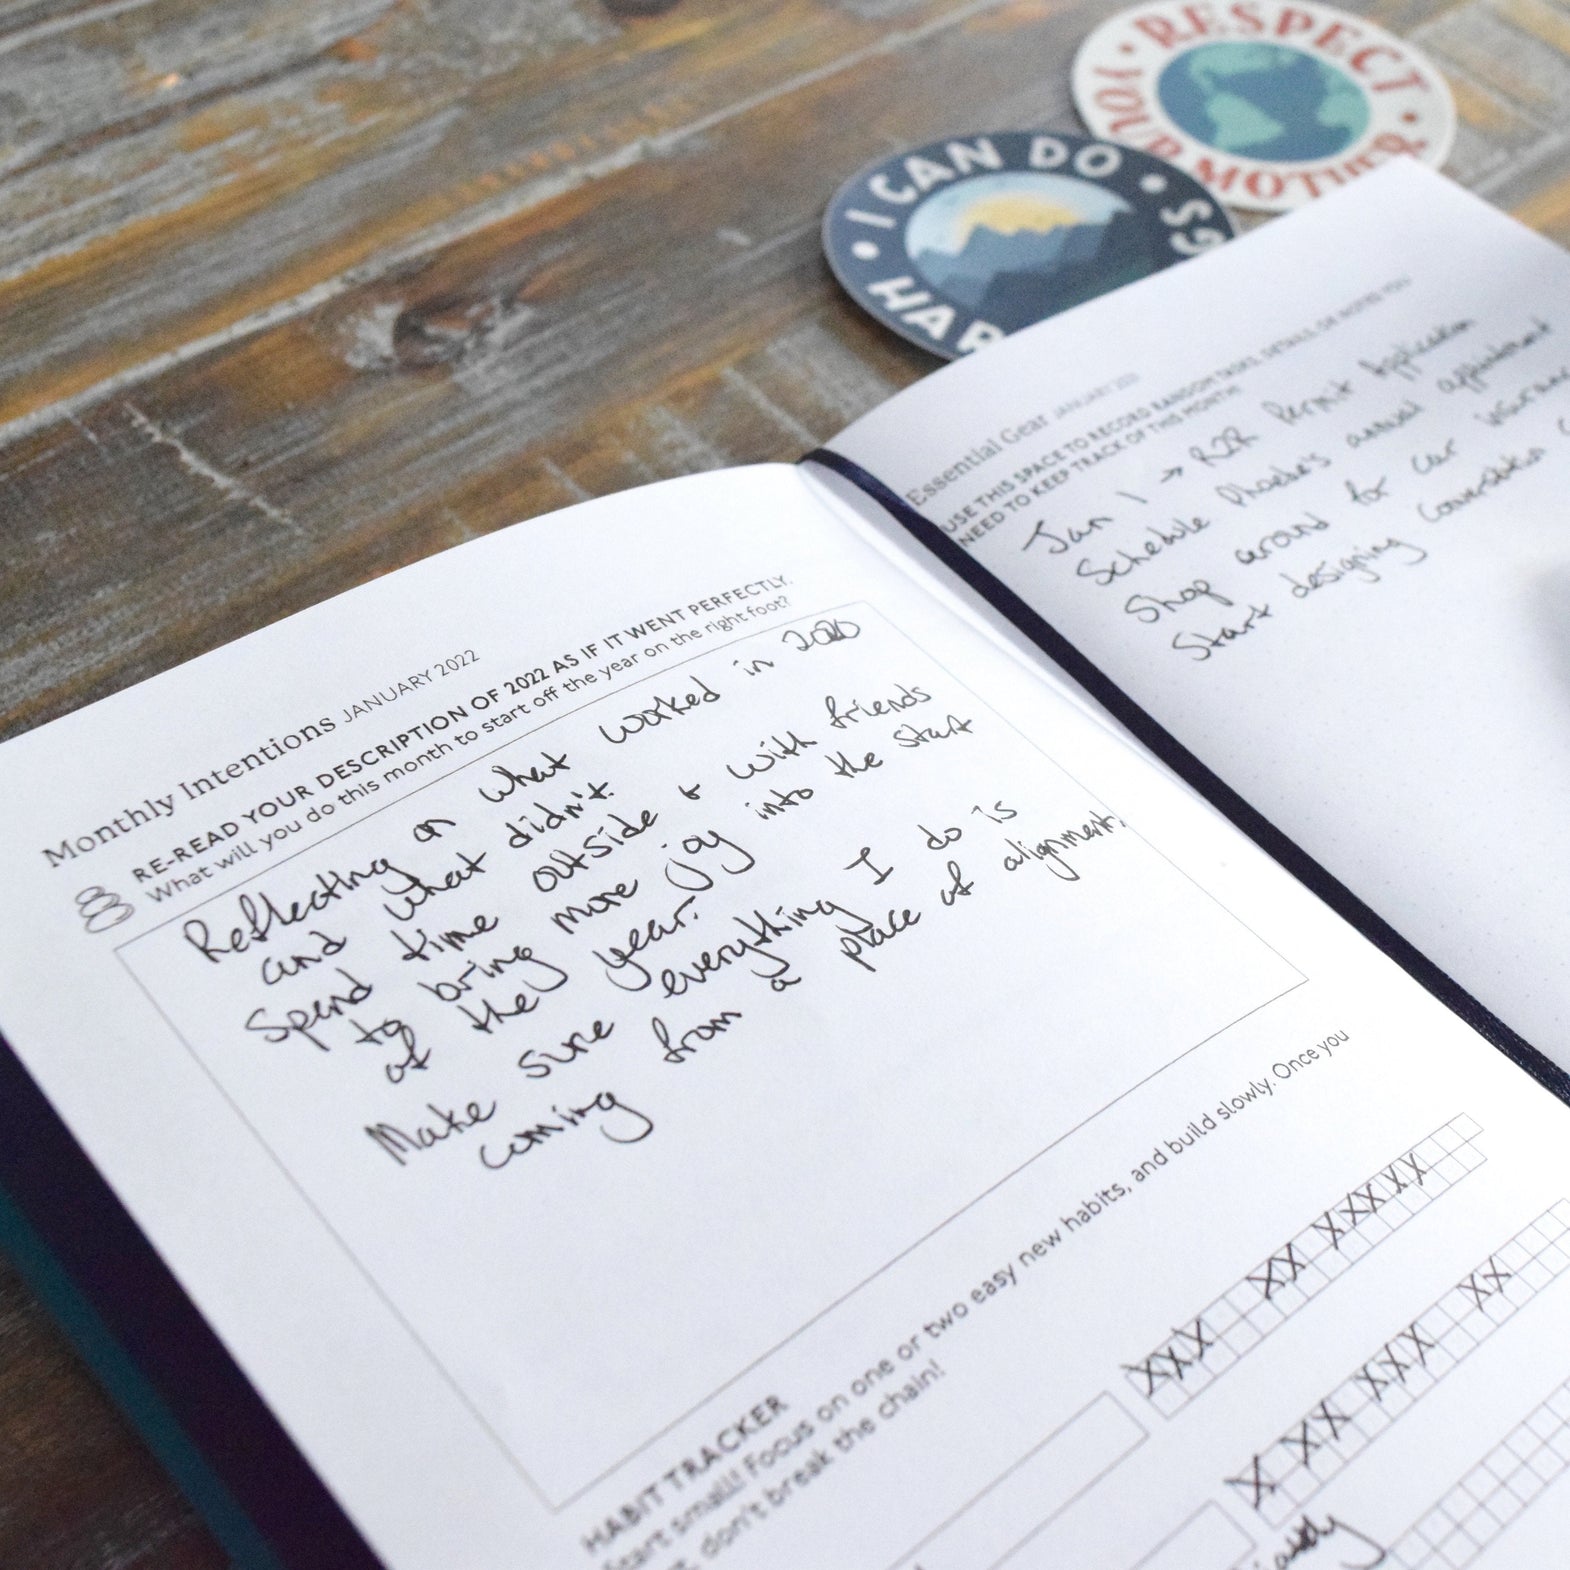 RESPECT • YOUR MOTHER •
• I CAN DO •
Monthly Intentions JANUARY 2022
RE-READ YOUR DESCRIPTION OF 2022 AS IF IT WENT PERFECTLY.
What will you do this month to start off the year on the right foot?
Reflecting on what worked in
and what didn't.
Spend time outside & with friends
to bring more joy into the start
of the year.
Make sure everything I do is
coming from a place of alignment.
HABIT TRACKER
Start small! Focus on one or two easy new habits, and build slowly. Once you
don't break the chain!
Essential Gear JANUARY
USE THIS SPACE TO RECORD RANDOM TASKS, DETAILS, OR NOTES YOU
NEED TO KEEP TRACK OF THIS MONTH!
Jan 1 → R2R Permit Application
Schedule Phoebe's annual appointment
Shop around for car insurance
Start designing Conversation